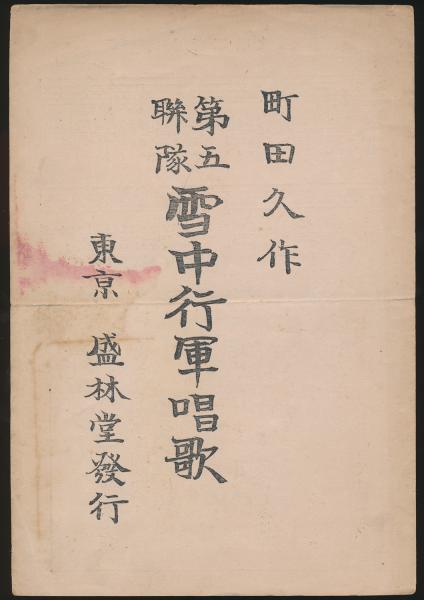 町田久作
第五聯隊雪中行軍唱歌
東京 盛林堂發行